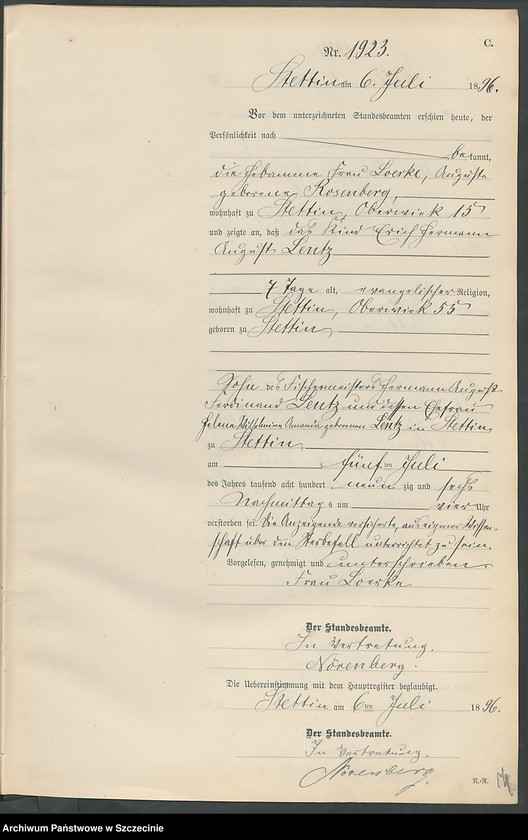 C.
Nr. 1923.
Stettin am 6. Juli 1896.
Vor dem unterzeichneten Standesbeamten erschien heute, der
Persönlichkeit nach
bekannt,
die Hebamme Frau Loerke, Auguste
geborene Rosenberg,
wohnhaft zu Stettin, Oberwiek 15
und zeigte an, daß das Kind Erich Hermann
August Lentz
7 Tage alt, evangelischer Religion,
wohnhaft zu Stettin, Oberwiek 55
geboren zu Stettin,
Sohn des Fischermeisters Hermann August
Ferdinand Lentz und dessen Ehefrau
Helene Wilhelmine Amanda geborenen Lentz in Stettin
zu Stettin,
am fünften Juli
des Jahres tausend acht hundert neunzig und sechs
Nachmittags um vier Uhr
verstorben sei. Die Anzeigende versicherte, aus eigner Wissen-
schaft über den Sterbefall unterrichtet zu sein.
Vorgelesen, genehmigt und unterschrieben
Frau Loerke
Der Standesbeamte.
In Vertretung.
Nörenberg.
Die Uebereinstimmung mit dem Hauptregister beglaubigt.
Stettin am 6ten Juli 1896.
Der Standesbeamte.
In Vertretung.
Nörenberg.
Archiwum Państwowe w Szczecinie